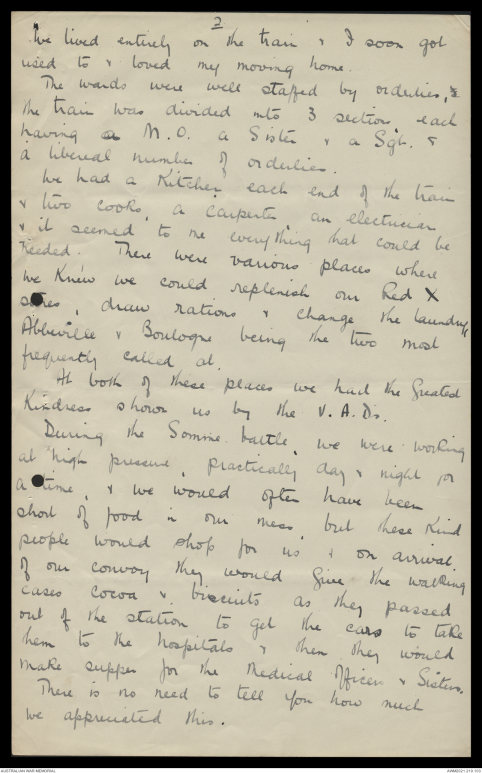 2
We lived entirely on the train & I soon got
used to & loved my moving home.
The wards were well staffed by orderlies, &
the train was divided into 3 sections each
having a M.O. a Sister & a Sgt. &
a libereal number of orderlies.
We had a Kitchen each end of the train
& two cooks, a carpenter, an electrician
& it seemed to me everything that could be
needed. There were various places where
we Knew we could replenish our Red X
stores, draw rations & change the laundry
Abbeville & Boulogne being the two most
frequently called at.
At both of these places we had the greatest
Kindness shown us by the V.A.Ds.
During the Somme battle, we were working
at high pressure, practically day & night for
a time, & we would often have been
short of food in our mess, but these Kind
people would shop for us & on arrival
of our convoy they would give the walking
cases cocoa & biscuits as they passed
out of the station to get the cars to take
them to the hospitals & then they would
make supper for the Medical Officers & Sisters.
There is no need to tell you how much
we appreciated this.
AUSTRALIAN WAR MEMORIAL